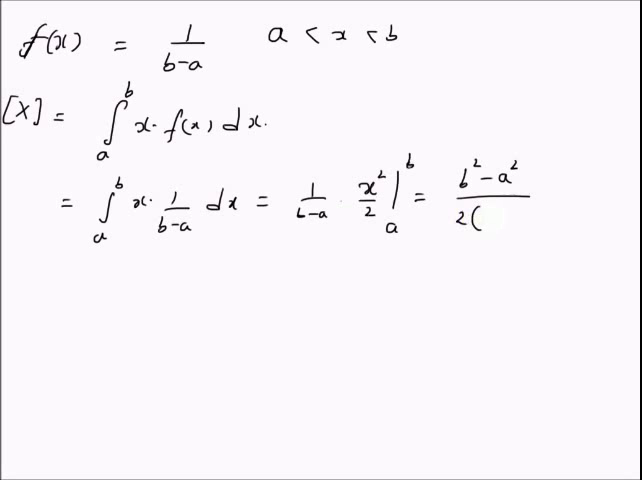 f(x) = 1/(b-a) a < x < b
[X] = ∫_a^b x · f(x) dx.
= ∫_a^b x · 1/(b-a) dx = 1/(b-a) · x²/2 |_a^b = (b² - a²)/2(